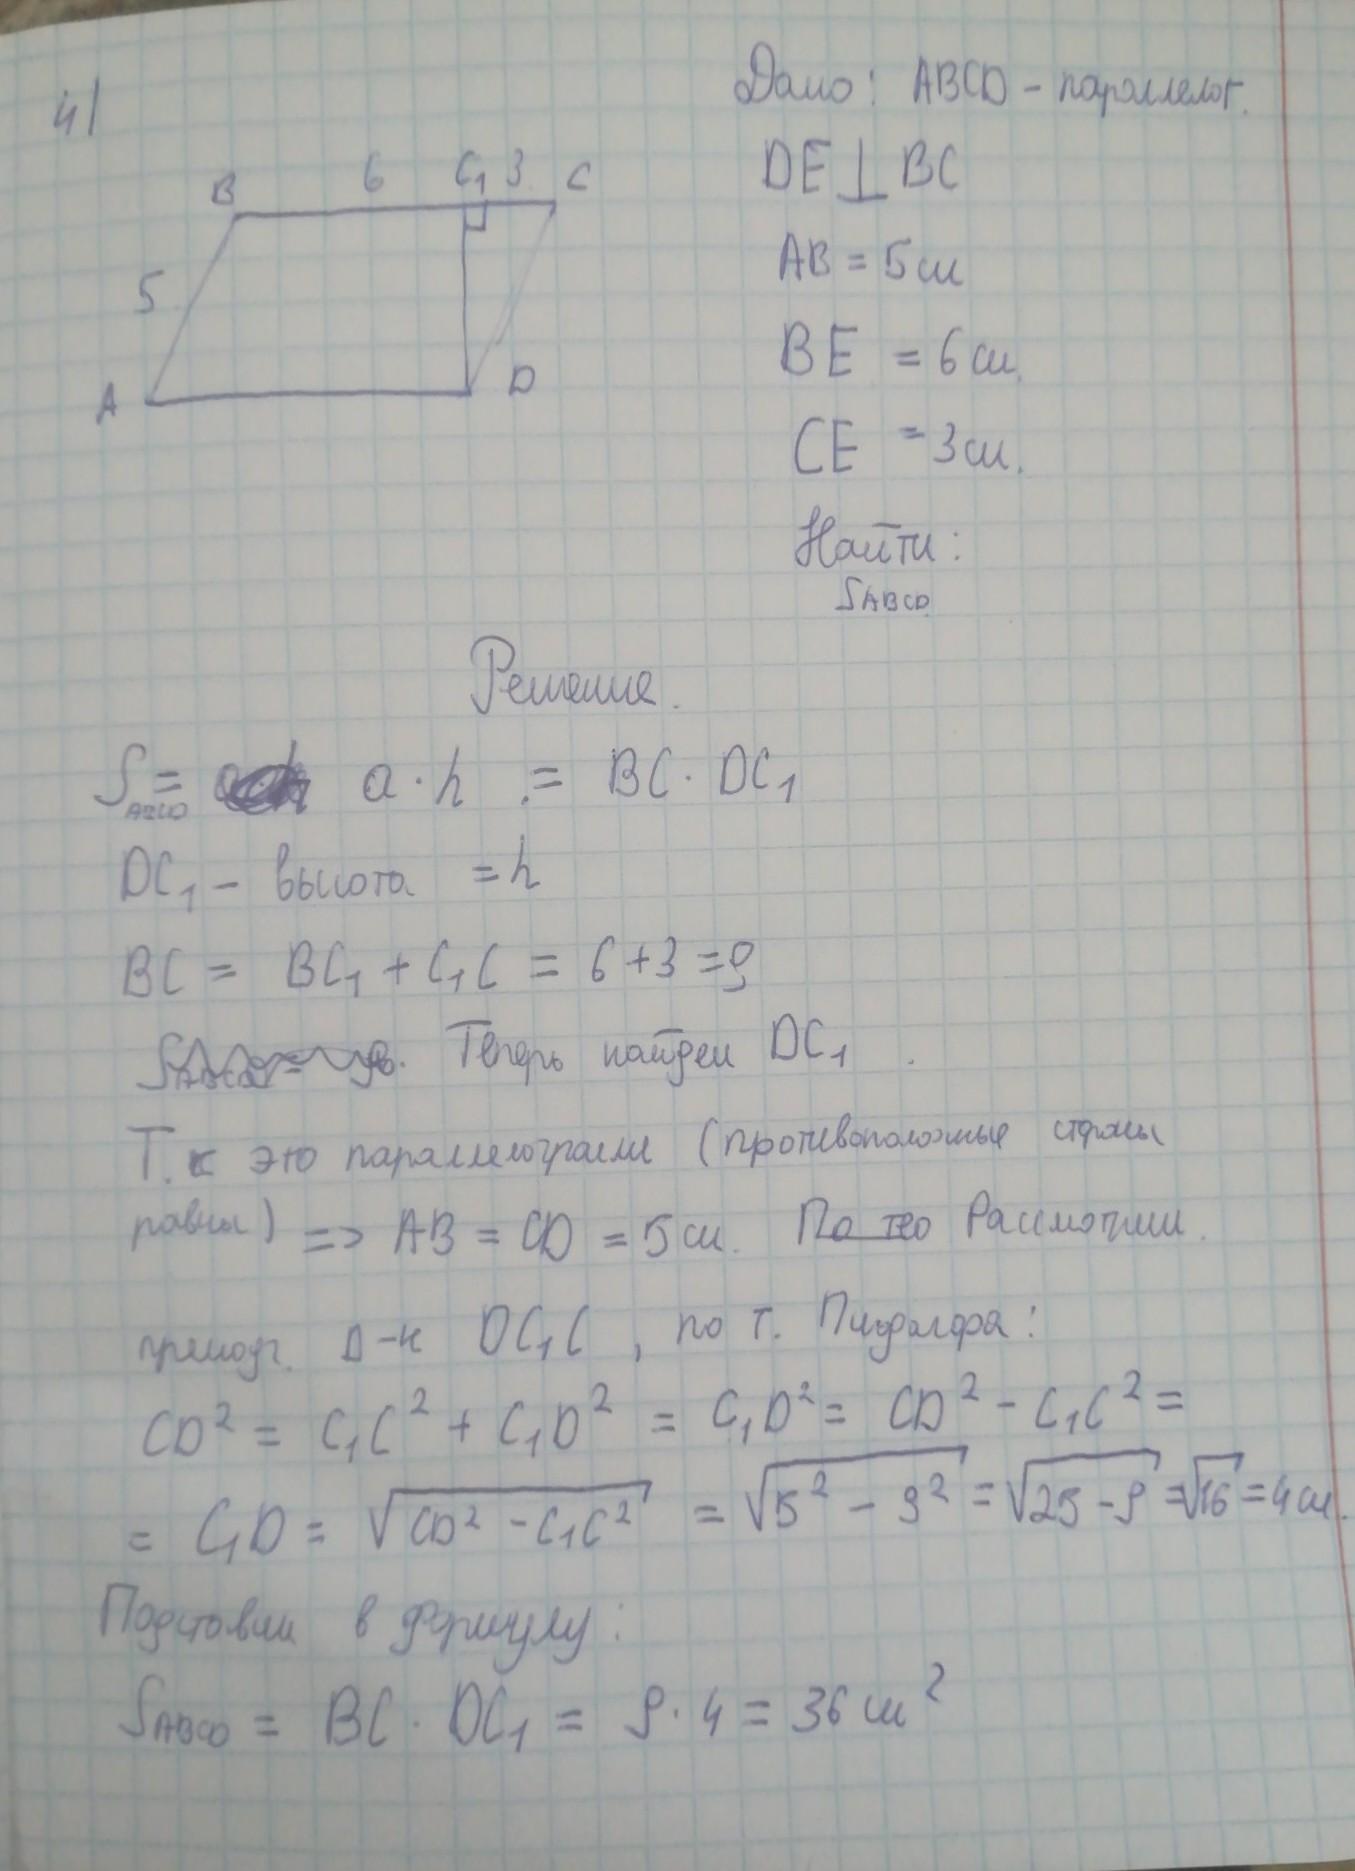 4)
Дано: ABCD - параллелог.
DE⊥BC
AB = 5 см
BE = 6 см.
CE = 3 см.
Найти:
SABCD
B 6 C₁ 3 C
5
A D
Решение.
SABCD = a · h = BC · DC₁
DC₁ - высота = h
BC = BC₁ + C₁C = 6 + 3 = 9
Теперь найдем DC₁.
Т.к это параллелограмм (противоположные стороны
равны) => AB = CD = 5 см. По тео Рассмотрим.
прямоуг. Δ-к DC₁C, по т. Пифагора:
CD² = C₁C² + C₁D² = C₁D² = CD² - C₁C² =
= C₁D = √CD² - C₁C² = √5² - 3² = √25 - 9 = √16 = 4 см.
Подставим в формулу:
SABCD = BC · DC₁ = 9 · 4 = 36 см²